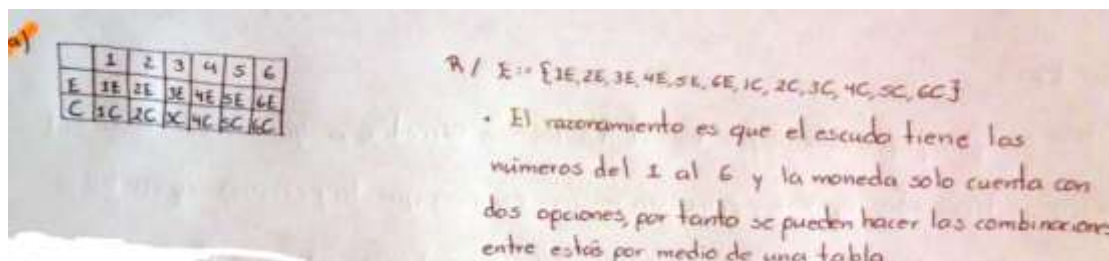 a)
1 2 3 4 5 6
E 1E 2E 3E 4E 5E 6E
C 1C 2C 3C 4C 5C 6C
R/ E:= {1E, 2E, 3E, 4E, 5E, 6E, 1C, 2C, 3C, 4C, 5C, 6C}
• El razonamiento es que el escudo tiene los
números del 1 al 6 y la moneda solo cuenta con
dos opciones, por tanto se pueden hacer las combinaciones
entre estás por medio de una tabla